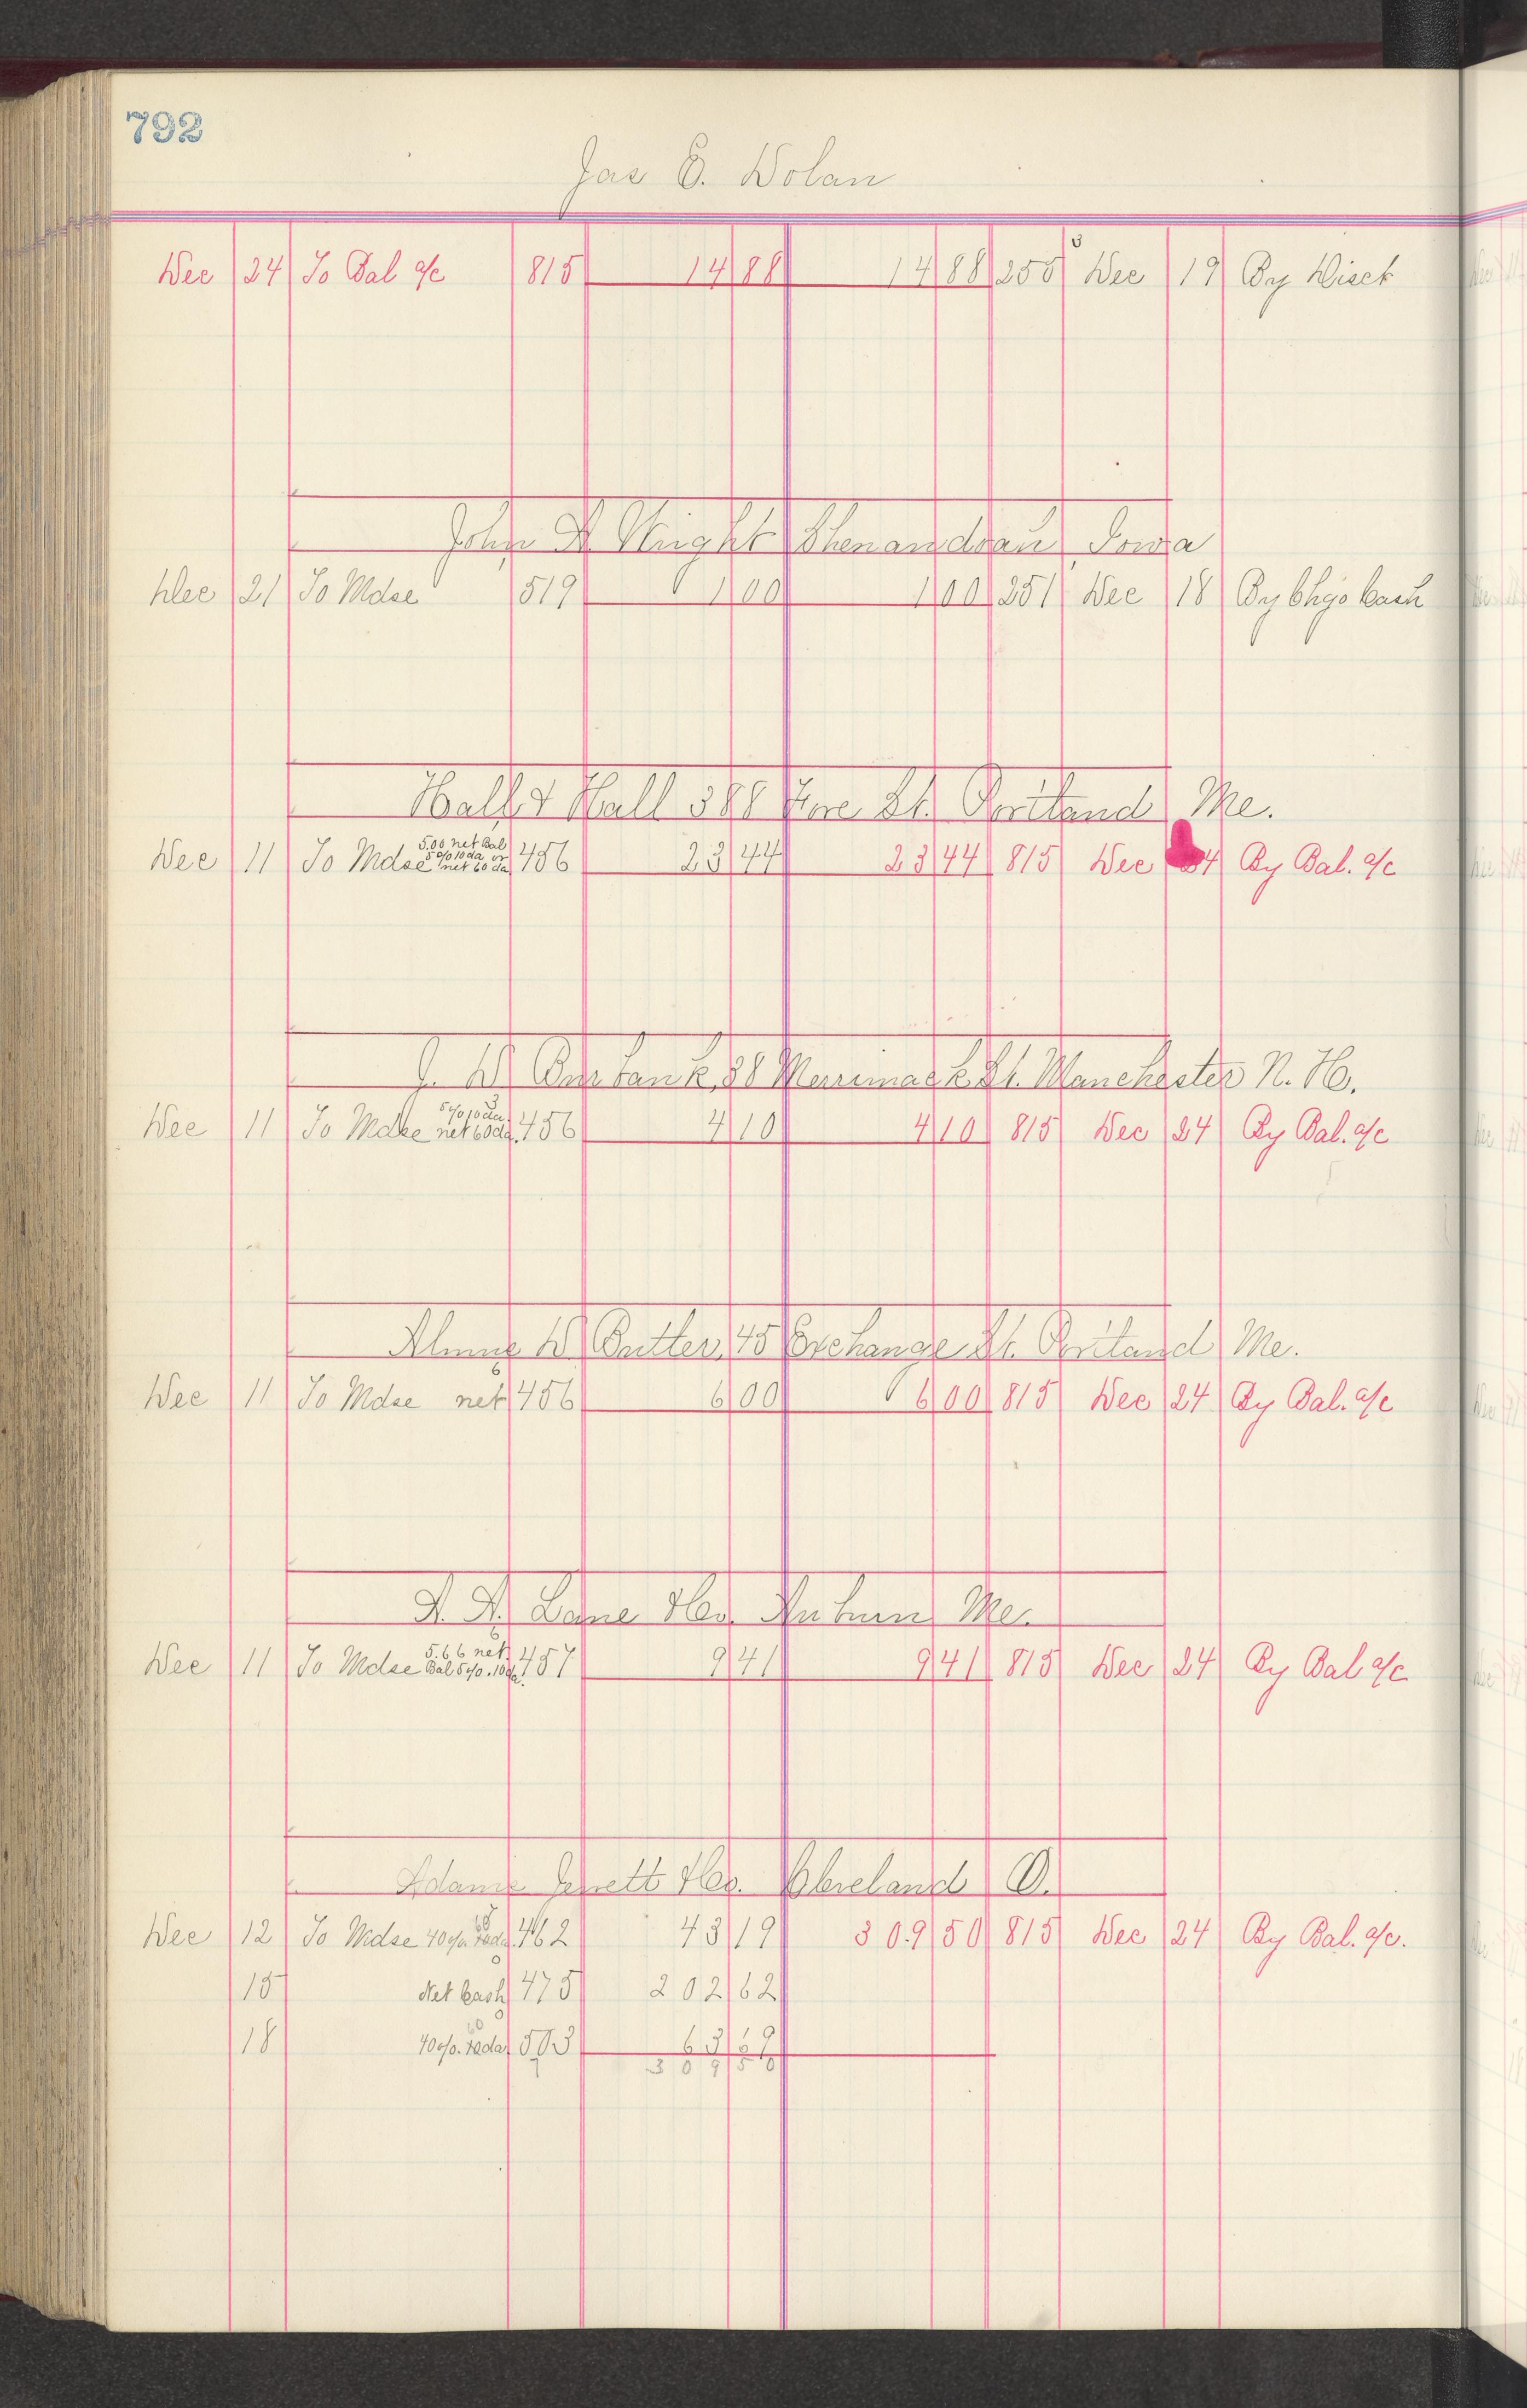 792
Jas E. Dolan
Dec 24 To Bal a/c 815 14 88 14 88 255 Dec 19 By Disct
John A Wright Shenandoah Iowa
Dec 21 To Mdse 519 1 00 1 00 251 Dec 18 By Chgo Cash
Hall & Hall 388 Fore St. Portland Me.
5.00 net Bal
5% 10 da or
Dec 11 To Mdse net 60 da 456 23 44 23 44 815 Dec 24 By Bal. a/c
J. W. Burbank, 88 Merrimack St. Manchester N. H.
5% 10 da
Dec 11 To Mdse net 60 da. 456 4 10 4 10 815 Dec 24 By Bal. a/c
W Butler, 45 Exchange St. Portland Me.
Dec 11 To Mdse net 456 6 00 6 00 815 Dec 24 By Bal. a/c
A. A. Lane & Co. Auburn Me.
5.66 net
Dec 11 To Mdse Bal 5% . 10 da. 457 9 41 9 41 815 Dec 24 By Bal a/c
Adams & Co. Cleveland O.
Dec 12 To Mdse 40%. da. 462 43 19 309 50 815 Dec 24 By Bal. a/c.
15 Net Cash 475 202 62
18 40%. da 503 63 69
309 50